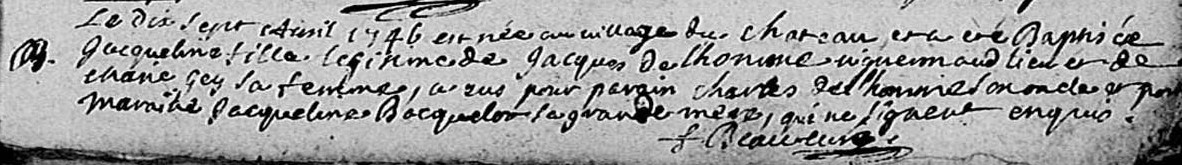 Le Dix Sept Avril 1746 est née au village du chateau, et a été Baptisée
Jacqueline fille legitime de Jacques de lhomme et de
sa femme, a eus pour parain charles de lhomme son oncle et pour
maraine Jacqueline Bacquelot sa grande mere, qui ne signent enquis.